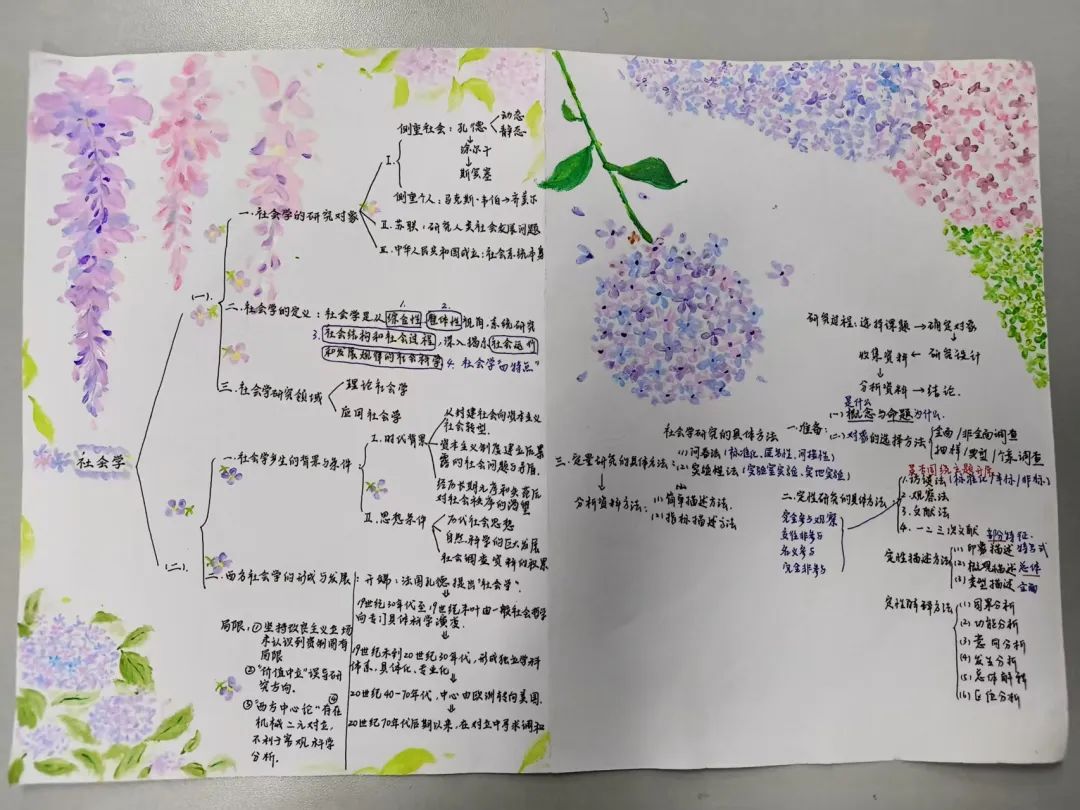 社会学
(一).
一.社会学的研究对象
I.
侧重社会：孔德
动态
静态
涂尔干
斯宾塞
侧重个人：马克斯·韦伯→齐美尔
II.苏联：研究人类社会发展问题
III.中华人民共和国成立：社会系统本身
二.社会学的定义：社会学是从综合性、整体性视角,系统研究
1.
2.
3.社会结构和社会过程,深入揭示社会运行
和发展规律的社会科学 4.社会学"四特点"
三.社会学研究领域
理论社会学
应用社会学
(二).
一.社会学产生的背景与条件
I.时代背景
从封建社会向资本主义
社会转型.
资本主义制度建立后暴
露的社会问题与矛盾.
经历长期无序和失范后
对社会秩序的渴望
II.思想条件
历代社会思想
自然科学的巨大发展
社会调查资料的积累
二.西方社会学的形成与发展：开端：法国孔德提出"社会学".
19世纪30年代至19世纪末叶由一般社会哲学
向专门具体科学演变.
19世纪末到20世纪30年代，形成独立学科
体系、具体化、专业化
20世纪40-70年代，中心由欧洲转向美国.
20世纪70年代后期以来，在对立中寻求调和
局限：①坚持改良主义立场
未认识到资制固有
局限
②"价值中立"误导研
究方向.
③"西方中心论"④存在
机械二元对立,
不利于客观科学
分析.
研究过程：选择课题→确定对象
收集资料←研究设计
分析资料→结论.
社会学研究的具体方法
一.准备：
是什么
(一)概念与命题为什么.
(二)对象的选择方法
全面/非全面调查
抽样/典型/个案调查
二.定性研究的具体方法
是否围绕主题开展
1.访谈法(标准化/半标/非标)
2.观察法
3.文献法
4.一二三次文献
完全参与观察
名义参与
完全非参与
定性描述方法
部分特征.
(1)印象描述
(2)概观描述 总体
(3)类型描述 全面
定性解释方法
(1)因果分析
(2)功能分析
(3)意向分析
(4)发生分析
(5)总体解释
(6)区位分析
三.定量研究的具体方法：
(1)问卷法(标准化,匿名性,间接性)
(2)实验法(实验室实验,实地实验)
分析资料方法：
(1)简单描述方法.
(2)指标描述方法